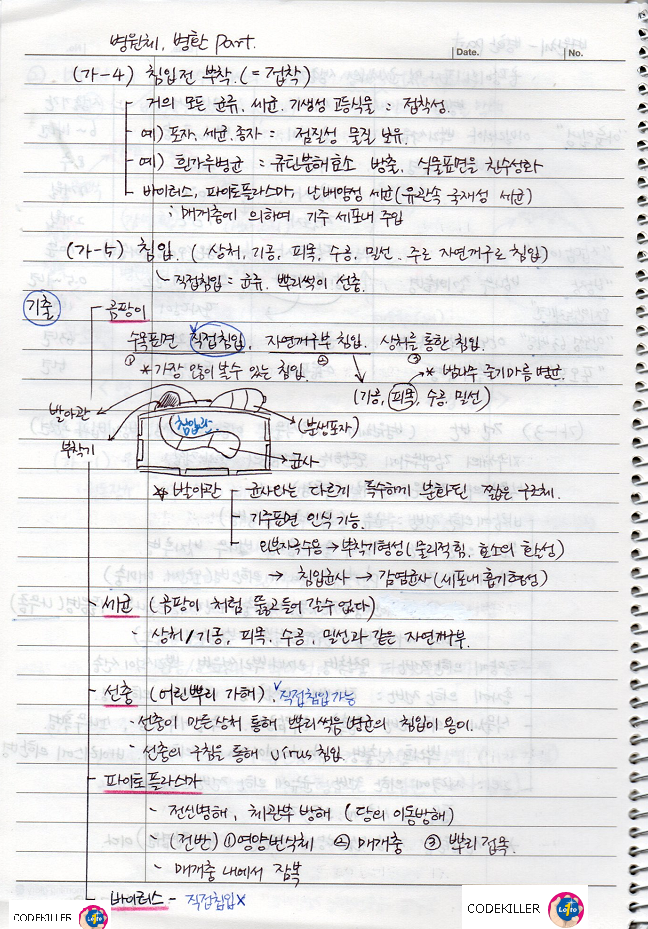 병원체, 병환 part.
Date.
No.
(가-4) 침입전 부착. (= 접착)
거의 모든 균류, 세균, 기생성 고등식물 : 접착성.
예) 포자, 세균, 종자 : 점질성 물질 보유.
예) 흰가루병균 : 큐틴분해효소 방출, 식물표면을 친수성화
바이러스, 파이토플라스마, 난배양성 세균(유관속 국재성 세균)
: 매개충에 의하여 기주 세포내 주입
(가-5) 침입. (상처, 기공, 피목, 수공, 밀선. 주로 자연개구로 침입)
직접침입 = 균류, 뿌리썩이 선충.
기출
곰팡이
수목표면 직접침입, 자연개구부 침입. 상처를 통한 침입.
① ② ③
* 가장 많이 볼수 있는 침입.
* 밤나무 줄기마름병균.
(기공, 피목, 수공, 밀선)
발아관
침입관
(분생포자)
부착기
균사
* 발아관 - 균사와는 다르게 특수하게 분화된 짧은 구조체.
- 기주표면 인식 기능.
외부자극수용 → 부착기형성(물리적힘, 효소의 활성)
→ 침입균사 → 감염균사(세포내 흡기형성)
세균 (곰팡이 처럼 뚫고들어 갈수 없다)
- 상처/기공, 피목, 수공, 밀선과 같은 자연개구부.
선충 (어린뿌리 가해). 직접침입가능
- 선충이 만든상처 통해 뿌리썩음병균의 침입이 용이.
- 선충의 구침을 통해 virus 침입.
파이토플라스마
- 전신병해, 체관부 방해 (당의 이동방해)
- (전반) ①영양번식체 ② 매개충 ③ 뿌리접목.
- 매개충 내에서 잠복
바이러스 - 직접침입×
CODEKILLER
Lotto
CODEKILLER
Lotto